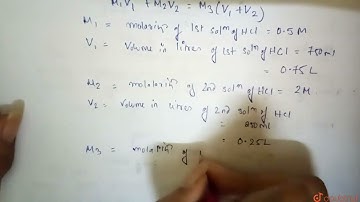 M₁V₁ + M₂V₂ = M₃(V₁+V₂)
M₁ = molarity of 1st solⁿ of HCl = 0.5M
V₁ = Volume in litres of 1st solⁿ of HCl = 750ml
= 0.75L
M₂ = molarity of 2nd solⁿ of HCl = 2M
V₂ = volume in litres of 2nd solⁿ of HCl
= 250ml
= 0.25L
M₃ = molarity of